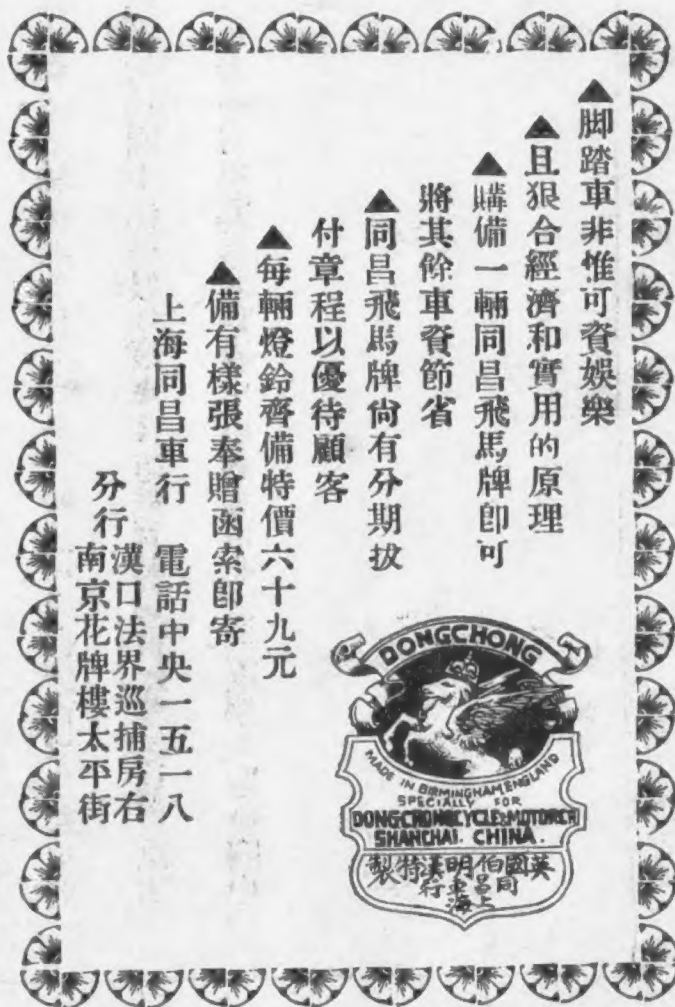 ▲脚踏車非惟可資娛樂
▲且狠合經濟和實用的原理
▲購備一輛同昌飛馬牌卽可
將其餘車資節省
▲同昌飛馬牌尙有分期拔
付章程以優待顧客
▲每輛燈鈴齊備特價六十九元
▲備有樣張奉贈函索卽寄
上海同昌車行 電話中央一五一八
分行
漢口法界巡捕房右
南京花牌樓太平街
DONGCHONG
MADE IN BIRMINGHAM ENGLAND
SPECIALLY FOR
DONGCHONG CYCLE & MOTOR CO
SHANGHAI. CHINA.
英國伯明漢特製
上海同昌車行